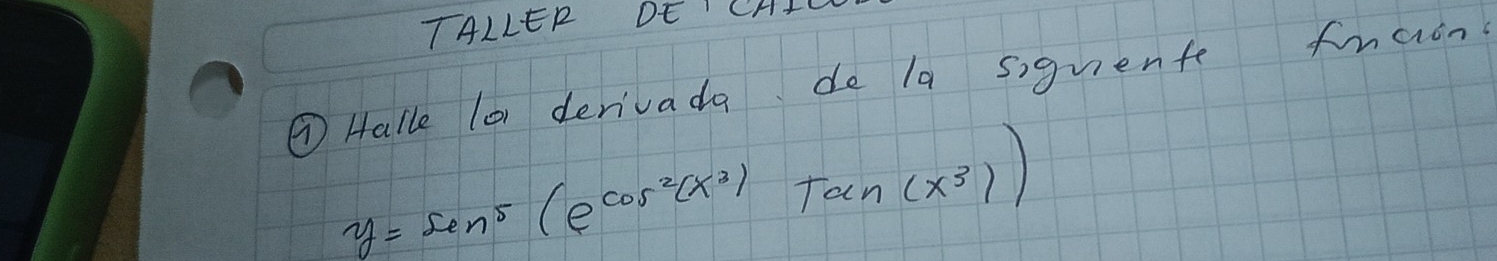 TALLER DE
① Halle la derivada de la siguiente función:
y = sen⁵ (e^cos²(x³) Tan (x³))